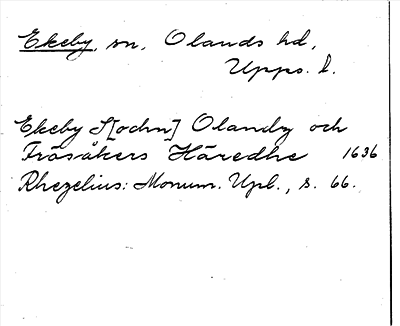 Ekeby, sn, Olands hd,
Upps. l.
Ekeby S[ochn] Olandz och
Frösåkers Häredhe 1636
Rhezelius: Monum. Upl., s. 66.